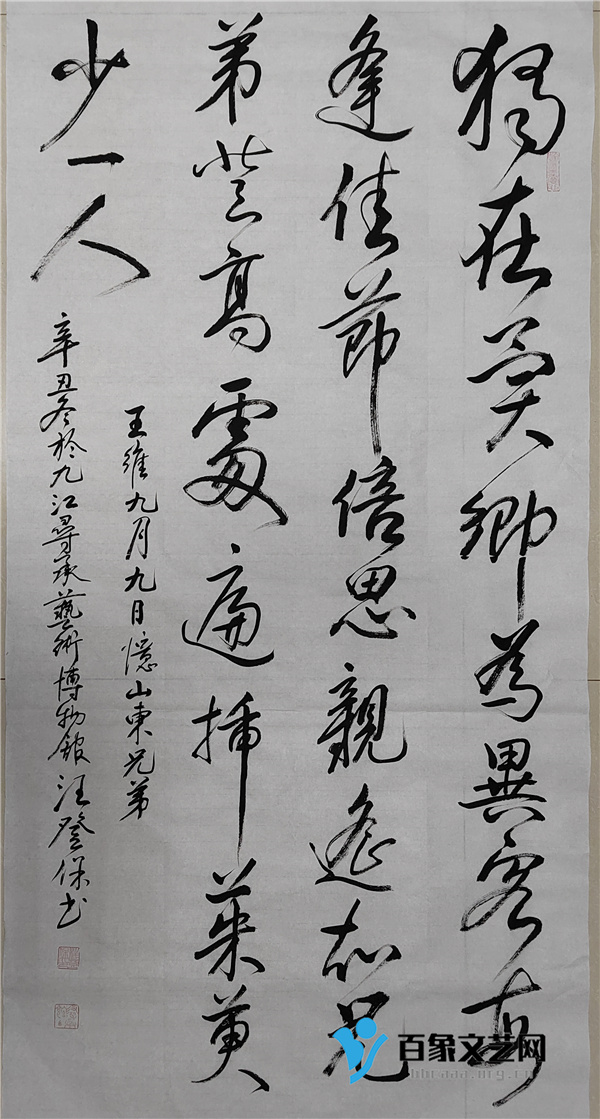 獨在異鄉為異客每
逢佳節倍思親遙知兄
弟登高處遍插茱萸
少一人
王維九月九日憶山東兄弟
辛丑冬於九江尋承藝術博物館汪登保书
百象文艺网